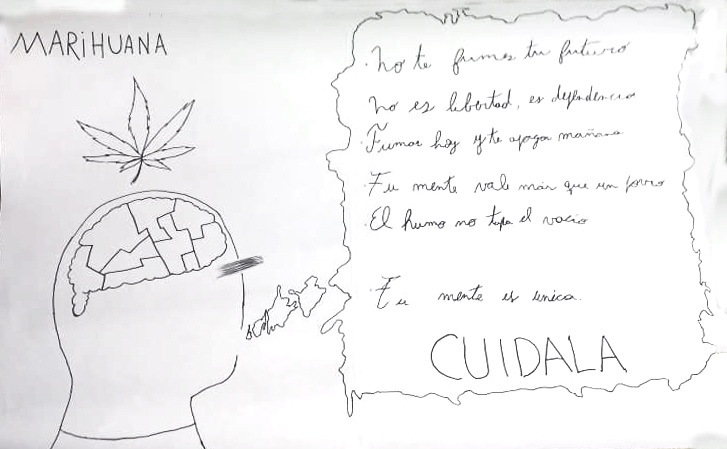 MARiHUANA
. No te fumes tu futuro
No es libertad, es dependencia
. Fumar hoy y te apaga mañana
. Tu mente vale más que un porro
. El humo no tapa el vacío
. Tu mente es unica.
CUIDALA